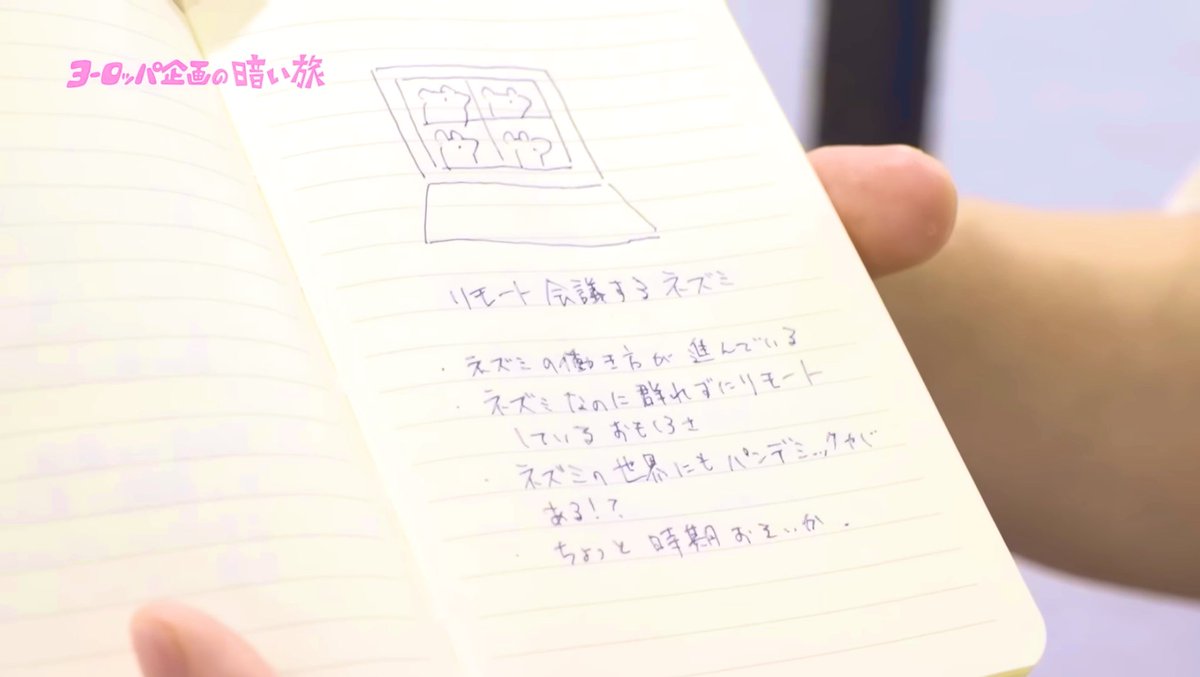 ヨーロッパ企画の暗い旅
リモート会議するネズミ
・ネズミの働き方が進んでいる
・ネズミなのに群れずにリモート
しているおもしろさ
・ネズミの世界にもパンデミックが
ある!?
・ちょっと時期おそいか.